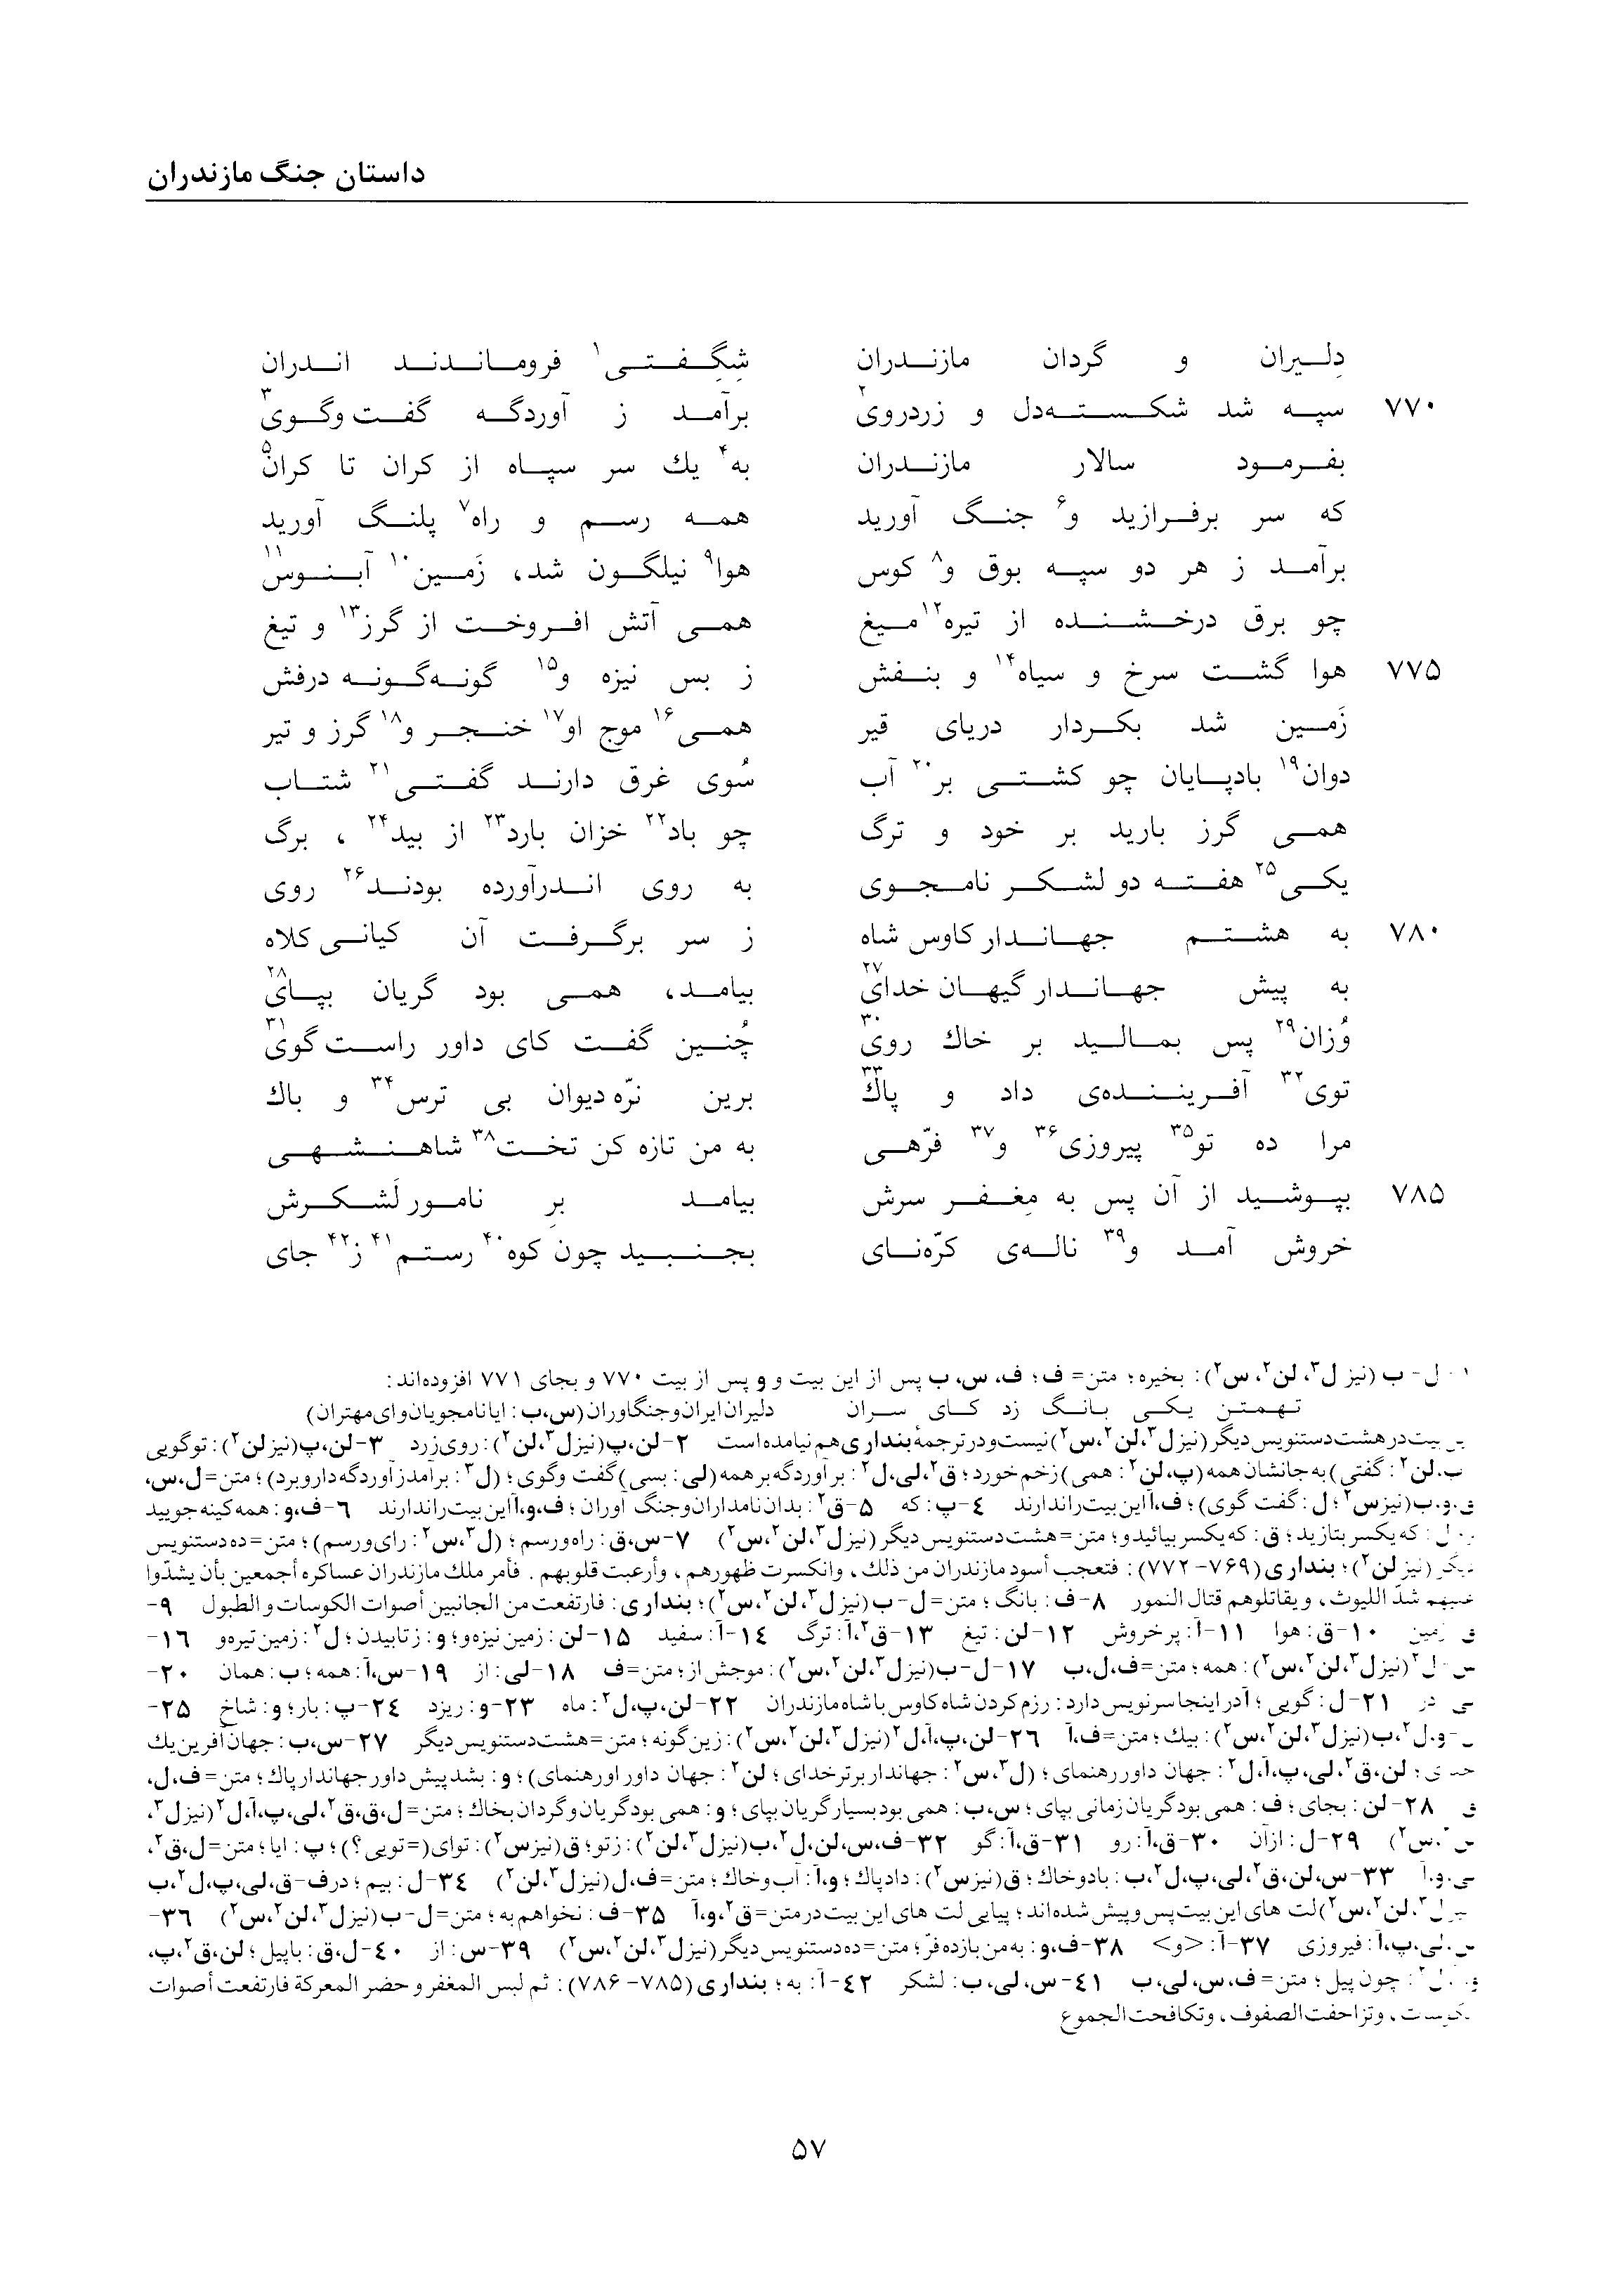 داستان جنگ مازندران
دلیران و گردان مازندران شگفتی۱ فروماندند اندران
۷۷۰ سپه شد شکسته‌دل و زردروی۲ برآمد ز آوردگه گفت‌وگوی۳
بفرمود سالار مازندران به۴ یك سر سپاه از کران تا کران۵
که سر برفرازید و۶ جنگ آورید همه رسم و راه۷ پلنگ آورید
برآمد ز هر دو سپه بوق و۸ کوس هوا۹ نیلگون شد، زَمین۱۰ آبنوس۱۱
چو برق درخشنده از تیره۱۲ میغ همی آتش افروخت از گرز۱۳ و تیغ
۷۷۵ هوا گشت سرخ و سیاه۱۴ و بنفش ز بس نیزه و۱۵ گونه‌گونه درفش
زَمین شد بکردار دریای قیر همی۱۶ موج او۱۷ خنجر و۱۸ گرز و تیر
دوان۱۹ بادپایان چو کشتی بر۲۰ آب سُوی غرق دارند گفتی۲۱ شتاب
همی گرز بارید بر خود و ترگ چو باد۲۲ خزان بارد۲۳ از بید۲۴، برگ
یکی۲۵ هفته دو لشکر نامجوی به روی اندرآورده بودند۲۶ روی
۷۸۰ به هشتم جهاندار کاوس شاه ز سر برگرفت آن کیانی کلاه
به پیش جهاندار گیهان خدای۲۷ بیامد، همی بود گریان بپای۲۸
وُزان۲۹ پس بمالید بر خاك روی۳۰ چُنین گفت کای داور راست گوی۳۱
توی۳۲ آفریننده‌ی داد و پاك۳۳ برین نرّه دیوان بی ترس۳۴ و باك
مرا ده تو۳۵ پیروزی۳۶ و۳۷ فرّهی به من تازه کن تخت۳۸ شاهنشهی
۷۸۵ بپوشید از آن پس به مِغفر سرش بیامد برِ نامور لَشکرش
خروش آمد و۳۹ ناله‌ی کرّنای بجنبید چون کوه۴۰ رستم۴۱ ز۴۲ جای
۱- ل- ب (نیز ل۳، لن۲، س۲): بخیره؛ متن= ف؛ ف، س، ب پس از این بیت و و پس از بیت ۷۷۰ و بجای ۷۷۱ افزوده‌اند:
تهمتن یکی بانگ زد کای سران دلیران ایران و جنگاوران (س، ب: ایا نامجویان و ای مهتران)
بیت در هشت دستنویس دیگر (نیز ل۳، لن۲، س۲) نیست و در ترجمهٔ بنداری هم نیامده است ۲- لن، پ (نیز ل۳، لن۲): روی زرد ۳- لن، پ (نیز لن۲): تو گویی
پ، لن۲: گفتی) به جانشان همه (پ، لن۲: همی) زخم خورد؛ ق۲، لی، ل۲: بر آوردگه بر همه (لی: بسی) گفت وگوی؛ (ل۳: برآمد ز آوردگه دار و برد)؛ متن= ل، س،
ق، و، ب (نیز س۲؛ ل: گفت گوی)؛ ف، آ این بیت را ندارند ۴- پ: که ۵- ق۲: بدان نامداران و جنگ آوران؛ ف، و، آ این بیت را ندارند ۶- ف، و: همه کینه جویید
ل: که یکسر بتازید؛ ق: که یکسر بیائید و؛ متن= هشت دستنویس دیگر (نیز ل۳، لن۲، س۲) ۷- س، ق: راه و رسم؛ (ل۳، س۲: رای و رسم)؛ متن= ده دستنویس
دیگر (نیز لن۲)؛ بنداری (۷۶۹- ۷۷۲): فتعجب أسود مازندران من ذلك، وانکسرت ظهورهم، وأرعبت قلوبهم. فأمر ملك مازندران عساکره أجمعین بأن یشدّوا
علیهم شدّ اللیوث، ویقاتلوهم قتال النمور ۸- ف: بانگ؛ متن= ل- ب (نیز ل۳، لن۲، س۲)؛ بنداری: فارتفعت من الجانبین أصوات الکوسات والطبول ۹-
ق زمین ۱۰- ق: هوا ۱۱- آ: پرخروش ۱۲- لن: تیغ ۱۳- ق۲، آ: ترگ ۱۴- آ: سفید ۱۵- لن: زمین نیزه و؛ و: ز تابیدن؛ ل۲: زمین تیره و ۱۶-
س، ل۲ (نیز ل۳، لن۲، س۲): همه؛ متن= ف، ل، ب ۱۷- ل- ب (نیز ل۳، لن۲، س۲): موجش از؛ متن= ف ۱۸- لی: از ۱۹- س، آ: همه؛ ب: همان ۲۰-
در ۲۱- ل: گویی؛ آ در اینجا سرنویس دارد: رزم کردن شاه کاوس با شاه مازندران ۲۲- لن، پ، ل۲: ماه ۲۳- و: ریزد ۲۴- پ: بار؛ و: شاخ ۲۵-
و، ل۲، ب (نیز ل۳، لن۲، س۲): بیك؛ متن= ف، آ ۲۶- لن، پ، آ، ل۲ (نیز ل۳، لن۲، س۲): زین گونه؛ متن= هشت دستنویس دیگر ۲۷- س، ب: جهان آفرین یك
خدای؛ لن، ق۲، لی، پ، آ، ل۲: جهان داور رهنمای؛ (ل۳، س۲: جهاندار برتر خدای؛ لن۲: جهان داور اورهنمای)؛ و: بشد پیش داور جهاندار پاك؛ متن= ف، ل،
ق ۲۸- لن: بجای؛ ف: همی بود گریان زمانی بپای؛ س، ب: همی بود بسیار گریان بپای؛ و: همی بود گریان و گردان بخاك؛ متن= ل، ق، ق۲، لی، پ، آ، ل۲ (نیز ل۳،
لن۲، س۲) ۲۹- ل: ازآن ۳۰- ق، آ: رو ۳۱- ق، آ: گو ۳۲- ف، س، لن، ل۲، ب (نیز ل۳، لن۲): ز تو؛ ق (نیز س۲): توای (= تویی؟)؛ پ: ایا؛ متن= ل، ق۲،
لی، و، آ ۳۳- س، لن، ق۲، لی، پ، ل۲، ب: باد و خاك؛ ق (نیز س۲): داد پاك؛ و، آ: آب و خاك؛ متن= ف، ل (نیز ل۳، لن۲) ۳۴- ل: بیم؛ در ف- ق، لی، پ، ل۲، ب
(نیز ل۳، لن۲، س۲) لت های این بیت پس و پیش شده‌اند؛ پیاپی لت های این بیت در متن= ق۲، و، آ ۳۵- ف: نخواهم به؛ متن= ل- ب (نیز ل۳، لن۲، س۲) ۳۶-
لی، پ، آ: فیروزی ۳۷- آ: <و> ۳۸- ف، و: به من باز ده فرّ؛ متن= ده دستنویس دیگر (نیز ل۳، لن۲، س۲) ۳۹- س: از ۴۰- ل، ق: باپیل؛ لن، ق۲، پ،
و، ل۲: چون پیل؛ متن= ف، س، لی، ب ۴۱- س، لی، ب: لشکر ۴۲- آ: به؛ بنداری (۷۸۵- ۷۸۶): ثم لبس المغفر و حضر المعرکة فارتفعت أصوات
وتزاحفت الصفوف، وتکافحت الجموع
۵۷